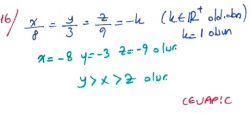 16/ x/8 = y/3 = z/9 = -k (k∈R⁺ olduğundan)
k=1 olsun
x=-8 y=-3 z=-9 olur.
y>x>z olur.
CEVAP: C